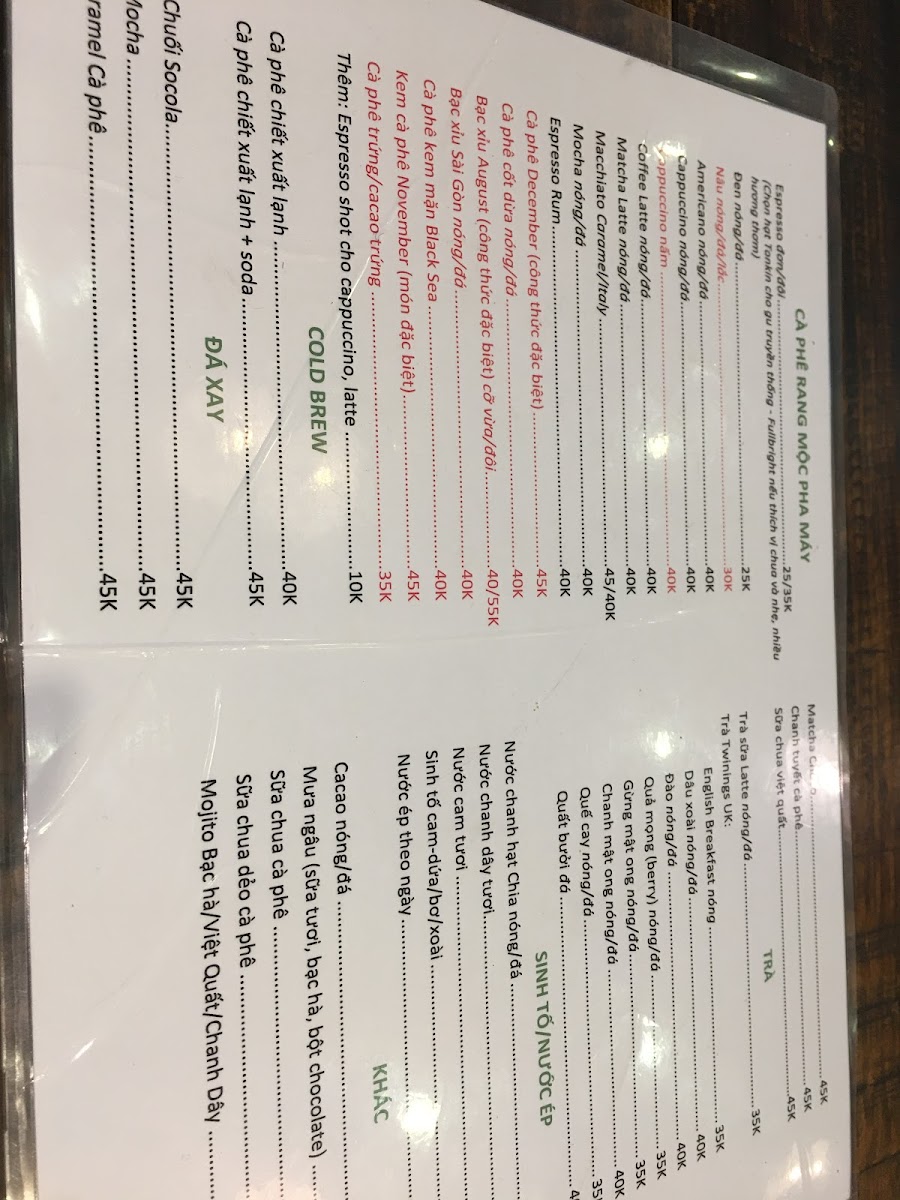 CÀ PHÊ RANG MỘC PHA MÁY
Espresso đơn/đôi....................25/35K
(Chọn hạt Tonkin cho gu truyền thống - Fullbright nếu thích vị chua và nhẹ, nhiều
hương thơm)
Đen nóng/đá....................25K
Nâu nóng/đá/lắc....................30K
Americano nóng/đá....................40K
Cappuccino nóng/đá....................40K
Cappuccino nấm....................40K
Coffee Latte nóng/đá....................40K
Matcha Latte nóng/đá....................40K
Macchiato Caramel/Italy....................45/40K
Mocha nóng/đá....................40K
Espresso Rum....................40K
Cà phê December (công thức đặc biệt)....................45K
Cà phê cốt dừa nóng/đá....................40K
Bạc xỉu August (công thức đặc biệt) cỡ vừa/đôi..........40/55K
Bạc xỉu Sài Gòn nóng/đá....................40K
Cà phê kem mặn Black Sea ....................40K
Kem cà phê November (món đặc biệt)....................45K
Cà phê trứng/cacao trứng ....................35K
Thêm: Espresso shot cho cappuccino, latte ....................10K
COLD BREW
Cà phê chiết xuất lạnh ....................40K
Cà phê chiết xuất lạnh + soda....................45K
ĐÁ XAY
Chuối Socola....................45K
Mocha ....................45K
ramel Cà phê....................45K
Matcha ....................45K
Chanh tuyết cà phê....................45K
Sữa chua việt quất....................45K
TRÀ
Trà sữa Latte nóng/đá....................35K
Trà Twinings UK:
English Breakfast nóng ....................35K
Dâu xoài nóng/đá....................40K
Đào nóng/đá ....................40K
Quả mọng (berry) nóng/đá ....................35K
Gừng mật ong nóng/đá....................35K
Chanh mật ong nóng/đá ....................40K
Quế cay nóng/đá....................35
Quất bưởi đá ....................4
SINH TỐ/NƯỚC ÉP
Nước chanh hạt Chia nóng/đá ....................
Nước chanh dây tươi....................
Nước cam tươi ....................
Sinh tố cam-dứa/bơ/xoài ....................
Nước ép theo ngày....................
KHÁC
Cacao nóng/đá ....................
Mưa ngâu (sữa tươi, bạc hà, bột chocolate) ....
Sữa chua cà phê ....................
Sữa chua dẻo cà phê ....................
Mojito Bạc hà/Việt Quất/Chanh Dây ..........